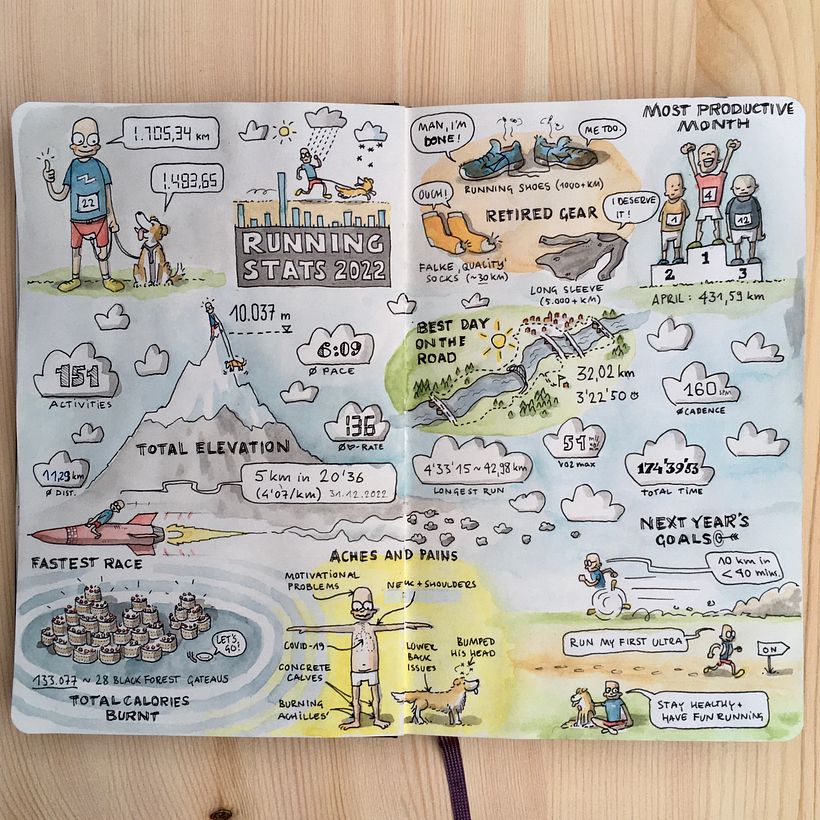 1.705,34 KM
1.493,65
22
RUNNING
STATS 2022
MAN, I'M
DONE!
ME TOO.
RUNNING SHOES (1000+KM)
OUCH!
RETIRED GEAR
I DESERVE
IT!
FALKE 'QUALITY'
SOCKS (~30KM)
LONG SLEEVE
(5.000+KM)
MOST PRODUCTIVE
MONTH
1
4
12
2
1
3
APRIL: 431,59 km
10.037 m
151
ACTIVITIES
6:09
Ø PACE
136
Ø♥-RATE
11,29 km
Ø DIST.
TOTAL ELEVATION
BEST DAY
ON THE
ROAD
32,02 km
3'22'50
160 SPM
Ø CADENCE
4'33'15 ~ 42,98 km
LONGEST RUN
51
VO2 max
174'39'53
TOTAL TIME
5 km in 20'36
(4'07/km) 31.12.2022
FASTEST RACE
LET'S
GO!
133.077 ~ 28 BLACK FOREST GATEAUS
TOTAL CALORIES
BURNT
ACHES AND PAINS
MOTIVATIONAL
PROBLEMS
NECK + SHOULDERS
COVID-19
CONCRETE
CALVES
BURNING
ACHILLES'
LOWER
BACK
ISSUES
BUMPED
HIS HEAD
NEXT YEAR'S
GOALS
10 km in
< 40 mins.
RUN MY FIRST ULTRA
ON
STAY HEALTHY +
HAVE FUN RUNNING